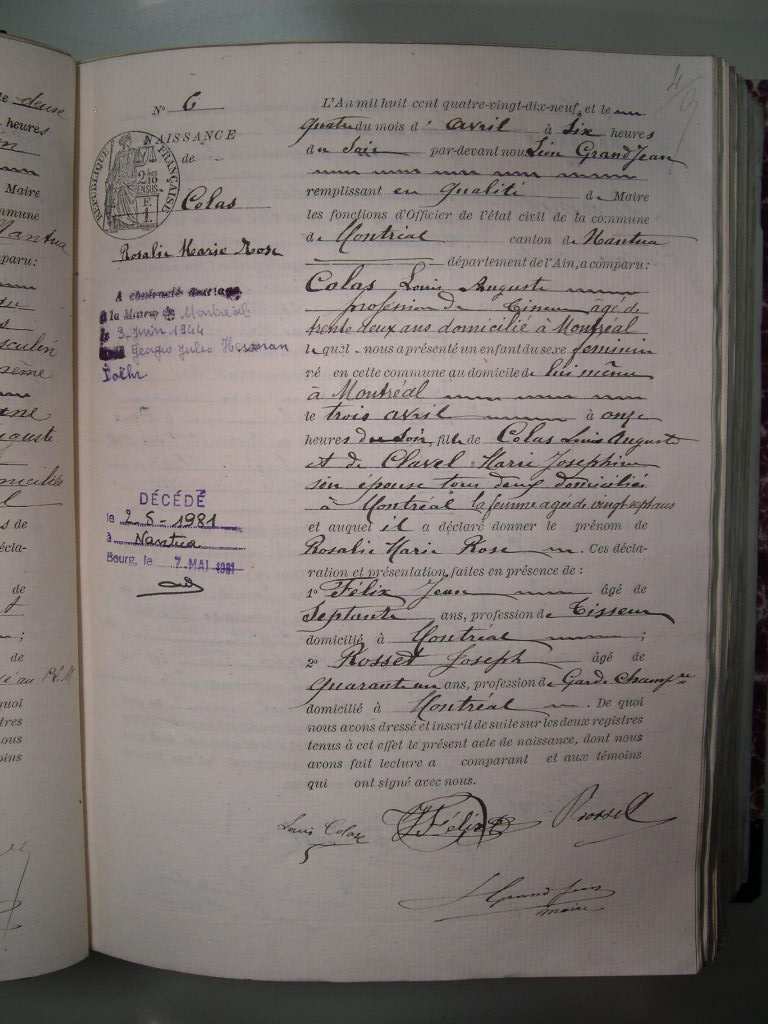 deuse
heures
Maire
commune
Nantua
comparu :
de
quoi
nous
4
N° 6
NAISSANCE
de
RÉPUBLIQUE FRANÇAISE
Colas
Rosalie Marie Rose
A contracté mariage
à la Mairie de Montréal
le 3 Juin 1944
Georges Jules Herman
DÉCÉDÉ
le 2-5-1981
à Nantua
Bourg, le 7 MAI 1981
L'An mil huit cent quatre-vingt-dix-neuf, et le
quatre du mois d' avril à Six heures
du Soir par-devant nous Léon GrandJean
remplissant en qualité de Maire
les fonctions d'Officier de l'état civil de la commune
de Montréal canton de Nantua
département de l'Ain, a comparu :
Colas Louis Auguste
profession de âgé de
trente deux ans domicilié à Montréal
lequel nous a présenté un enfant du sexe féminin
né en cette commune au domicile de lui même
à Montréal
le trois avril à onze
heures du Soir, fille de Colas Louis Auguste
et de Clavel Marie Josephine
son épouse tous deux domiciliés
à Montréal la femme agée de vingt sept ans
et auquel il a déclaré donner le prénom de
Rosalie Marie Rose . Ces décla-
ration et présentation faites en présence de :
1° Félix Jean âgé de
Septante ans, profession de Tisseur
domicilié à Montréal ;
2° Rosset Joseph âgé de
quarante un ans, profession de Garde Champre
domicilié à Montréal . De quoi
nous avons dressé et inscrit de suite sur les deux registres
tenus à cet effet le présent acte de naissance, dont nous
avons fait lecture a comparant et aux témoins
qui ont signé avec nous.
Louis Colas Félix Rosset
Grand Jean
maire